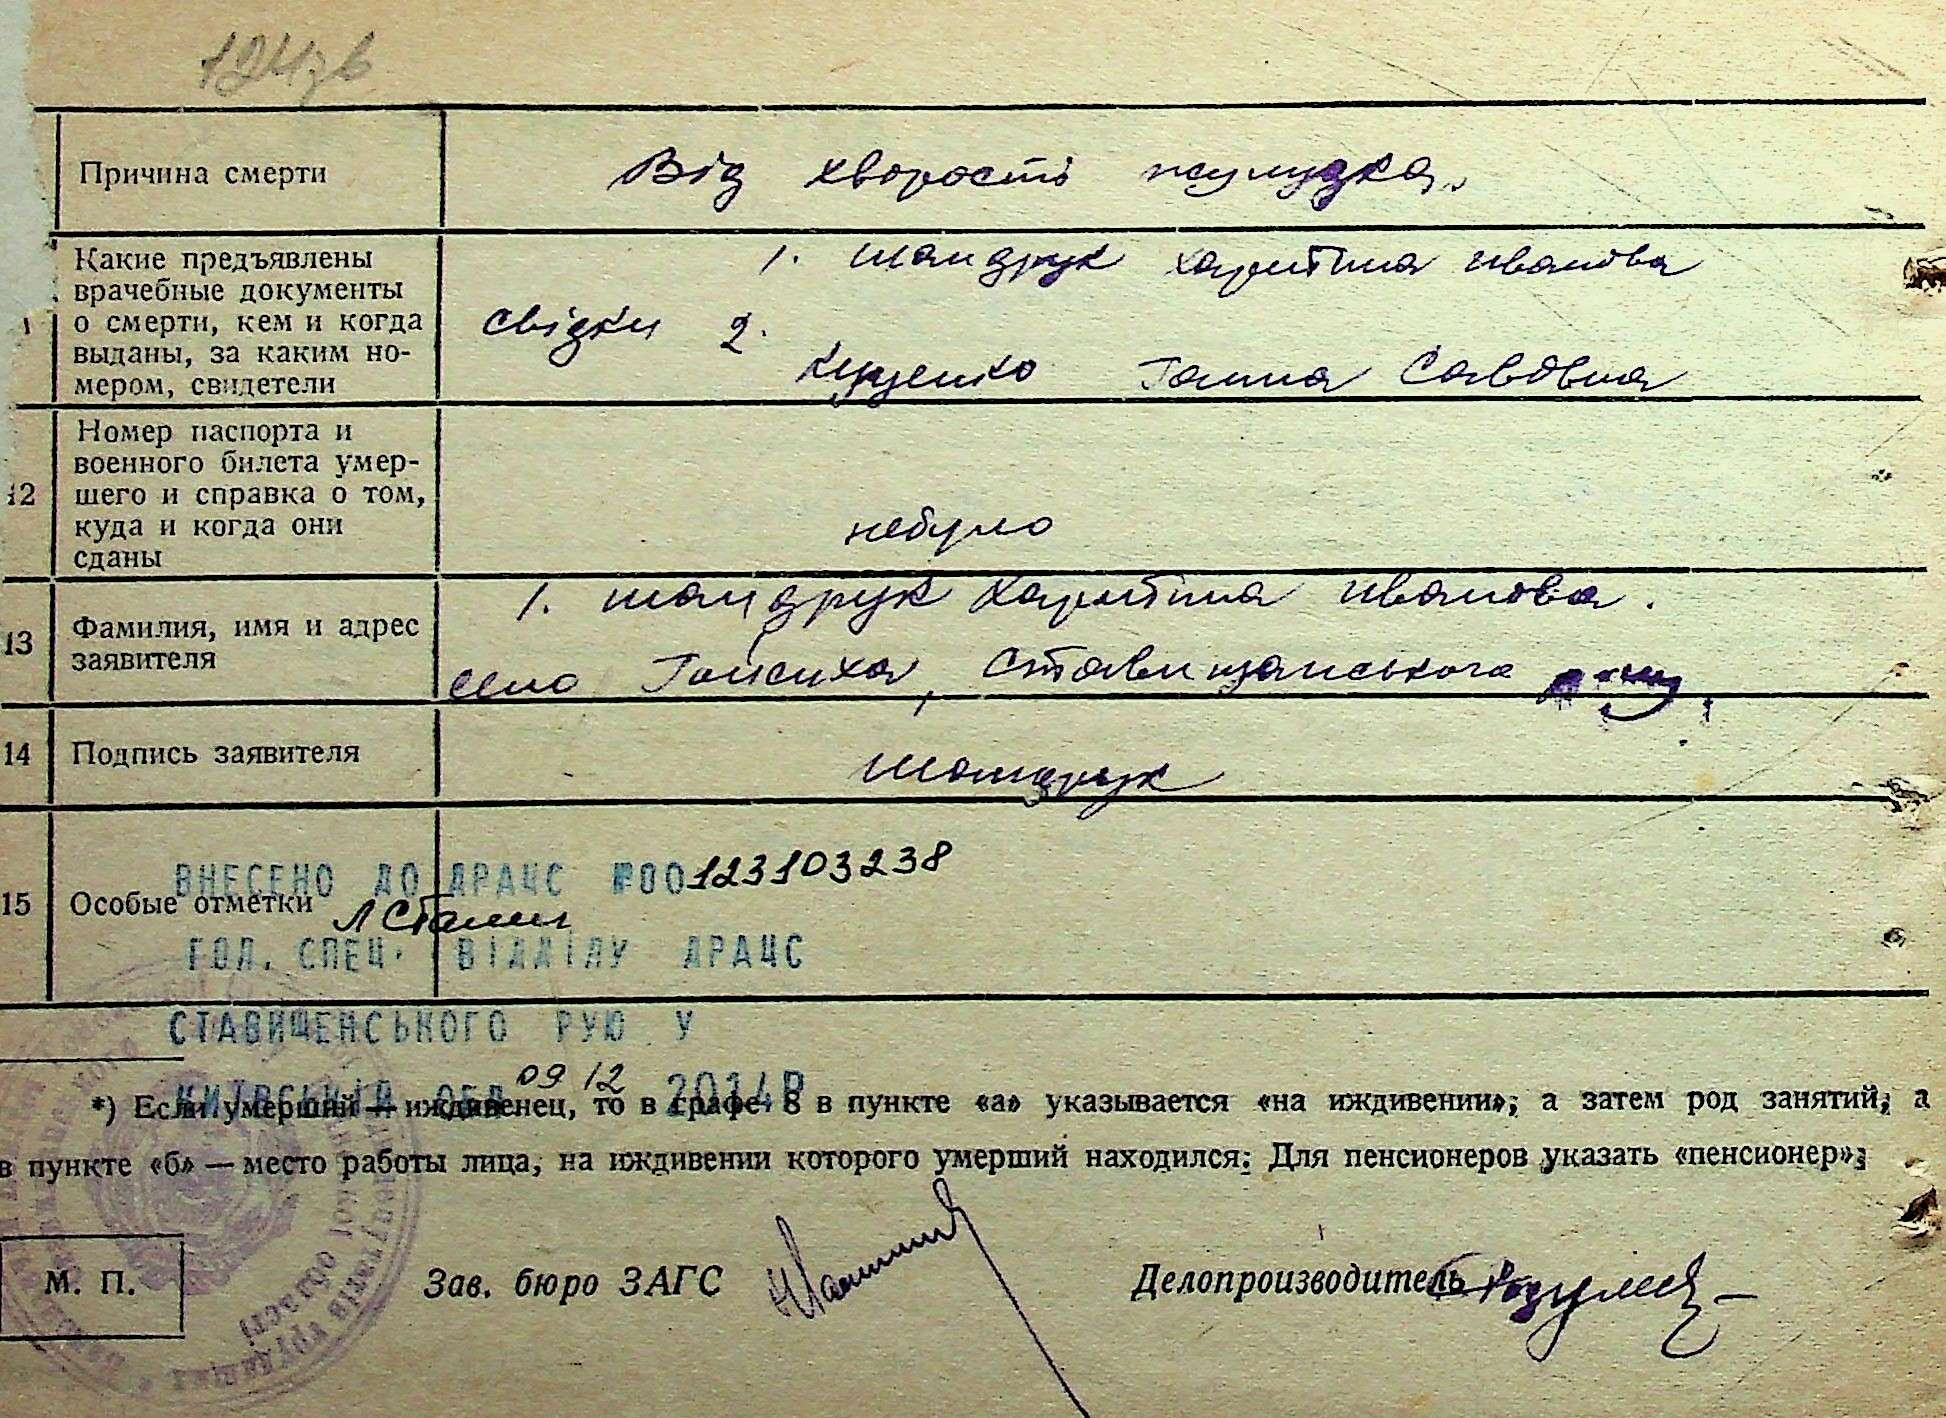 Причина смерти
Від хворости жулудка.
Какие предъявлены
врачебные документы
о смерти, кем и когда
выданы, за каким но-
мером, свидетели
1. Шандрук Харитина Иванова
свідки 2.
Куценко Ганна Савовна
12
Номер паспорта и
военного билета умер-
шего и справка о том,
куда и когда они
сданы
небуло
13
Фамилия, имя и адрес
заявителя
1. Шандрук Харитина Иванова.
село Гайсиха, Ставищанського
14
Подпись заявителя
Шандрук
15
Особые отметки
ВНЕСЕНО ДО ДРАЦС №00123103238
ГОЛ. СПЕЦ. ВІДДІЛУ ДРАЦС
СТАВИЩЕНСЬКОГО РУЮ У
КИЇВСЬКІЙ ОБЛ 09 12 2014Р
*) Если умерший — иждивенец, то в графе 8 в пункте «а» указывается «на иждивении», а затем род занятий, а
в пункте «б» — место работы лица, на иждивении которого умерший находился: Для пенсионеров указать «пенсионер»;
М. П.
Зав. бюро ЗАГС
Делопроизводитель